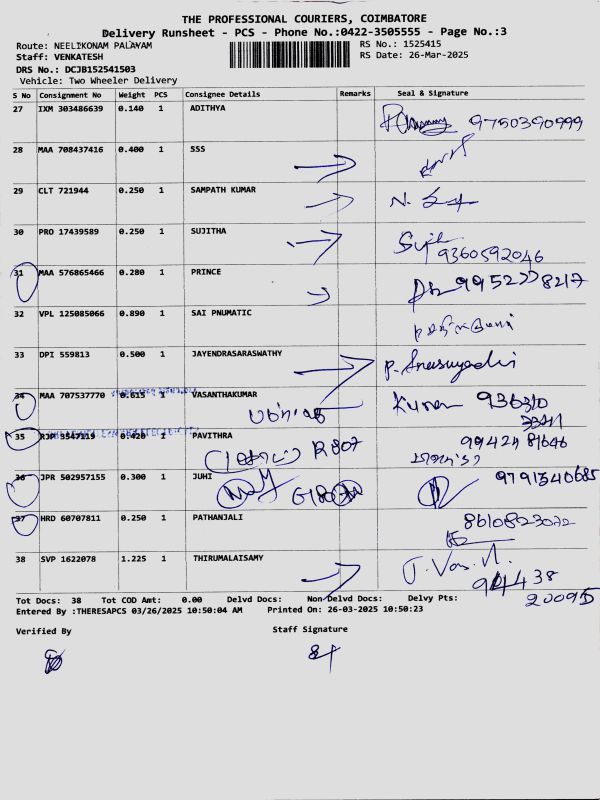 THE PROFESSIONAL COURIERS, COIMBATORE
Delivery Runsheet - PCS - Phone No.:0422-3505555 - Page No.:3
Route: NEELIKONAM PALAYAM
RS No.: 1525415
Staff: VENKATESH
RS Date: 26-Mar-2025
DRS No.: DCJB152541503
Vehicle: Two Wheeler Delivery
S No Consignment No Weight PCS Consignee Details Remarks Seal & Signature
27 IXM 303486639 0.140 1 ADITHYA
9750390999
28 MAA 708437416 0.400 1 SSS
29 CLT 721944 0.250 1 SAMPATH KUMAR
30 PRO 17439589 0.250 1 SUJITHA
9360592046
31 MAA 576865466 0.280 1 PRINCE
9952278217
32 VPL 125085066 0.890 1 SAI PNUMATIC
33 DPI 559813 0.500 1 JAYENDRASARASWATHY
34 MAA 707537770 0.615 1 VASANTHAKUMAR
Kumar
35 RJP 3547119 0.420 1 PAVITHRA
R807
99424 81646
36 JPR 502957155 0.300 1 JUHI
9791340685
37 HRD 60707811 0.250 1 PATHANJALI
8610823072
38 SVP 1622078 1.225 1 THIRUMALAISAMY
94438
20095
Tot Docs: 38 Tot COD Amt: 0.00 Delvd Docs: Non Delvd Docs: Delvy Pts:
Entered By :THERESAPCS 03/26/2025 10:50:04 AM Printed On: 26-03-2025 10:50:23
Verified By
Staff Signature